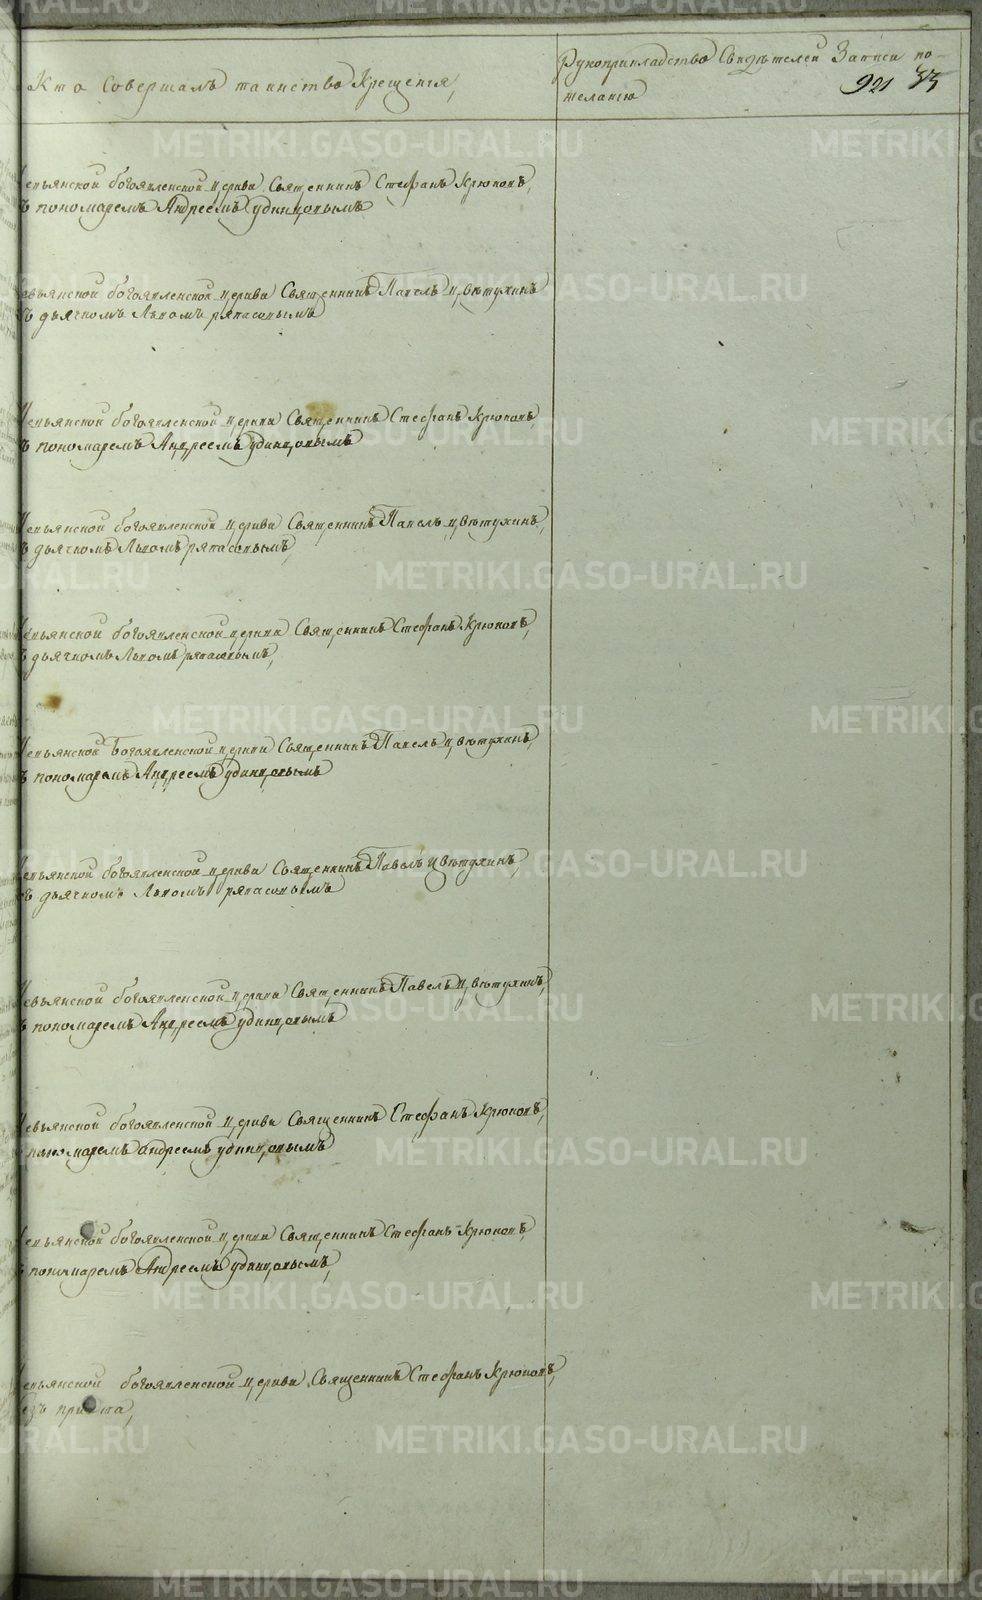 Кто совершалъ таинство Крещенія,
Рукоприкладство Свидѣтелей Записи по
желанію
921 33
Невьянской богоявленской церкви Священникъ Стефанъ Крюковъ,
съ пономаремъ Андреемъ Удинцовымъ
Невьянской богоявленской церкви Священникъ Павелъ Цвѣтухинъ
съ дьячкомъ Львомъ ряпасовымъ
Невьянской богоявленской церкви Священникъ Стефанъ Крюковъ,
съ пономаремъ Андреемъ Удинцовымъ
Невьянской богоявленской церкви Священникъ Павелъ Цвѣтухинъ,
съ дьячкомъ Львомъ ряпасовымъ,
Невьянской богоявленской церкви Священникъ Стефанъ Крюковъ,
съ дьячкомъ Львомъ ряпасовымъ,
Невьянской Богоявленской церкви Священникъ Павелъ Цвѣтухинъ,
съ пономаремъ Андреемъ Удинцовымъ
Невьянской богоявленской церкви Священникъ Павелъ Цвѣтухинъ,
съ дьячкомъ Львомъ ряпасовымъ
Невьянской богоявленской церкви Священникъ Павелъ Цвѣтухинъ,
съ пономаремъ Андреемъ Удинцовымъ
Невьянской богоявленской церкви Священникъ Стефанъ Крюковъ,
съ пономаремъ андреемъ Удинцовымъ
Невьянской богоявленской церкви Священникъ Стефанъ Крюковъ,
съ пономаремъ Андреемъ Удинцовымъ,
Невьянской богоявленской церкви Священникъ Стефанъ Крюковъ,
безъ причта,
METRIKI.GASO-URAL.RU